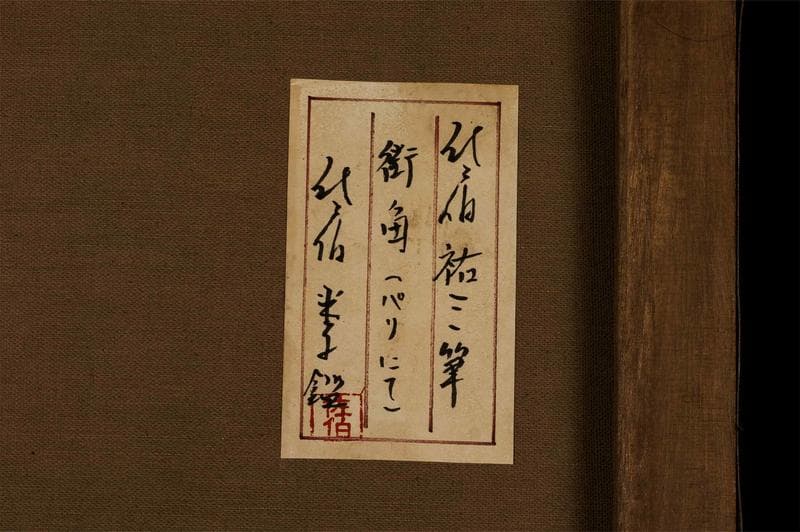 佐伯祐三筆
街角(パリにて)
佐伯米子鑑
佐伯